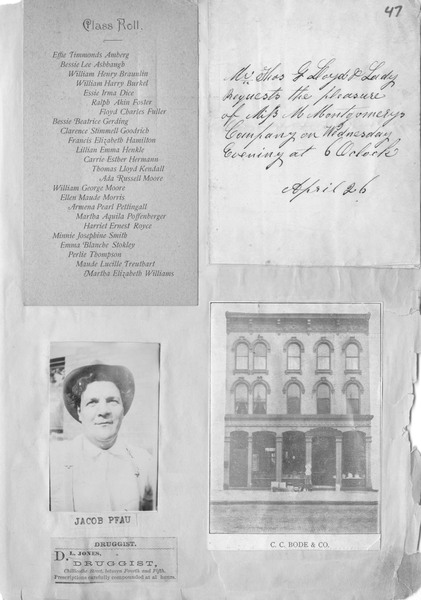 47
Class Roll.
Effie Timmonds Amberg
Bessie Lee Ashbaugh
William Henry Braunlin
William Harry Burkel
Essie Irma Dice
Ralph Akin Foster
Floyd Charles Fuller
Bessie Beatrice Gerding
Clarence Stimmell Goodrich
Francis Elizabeth Hamilton
Lillian Emma Henkle
Carrie Esther Hermann
Thomas Lloyd Kendall
Ada Russell Moore
William George Moore
Ellen Maude Morris
Armena Pearl Pettingall
Martha Aquila Poffenberger
Harriet Ernest Royce
Minnie Josephine Smith
Emma Blanche Stokley
Perlie Thompson
Maude Lucille Treuthart
Martha Elizabeth Williams
Mr. Thos G Lloyd & Lady
requests the pleasure
of Miss M Montgomerys
Company on Wednesday
Evening at 6 Oclock
April 26
JACOB PFAU
C. C. BODE & CO.
DRUGGIST.
D. L. JONES,
DRUGGIST,
Chillicothe street, between Fourth and Fifth.
Prescriptions carefully compounded at all hours.